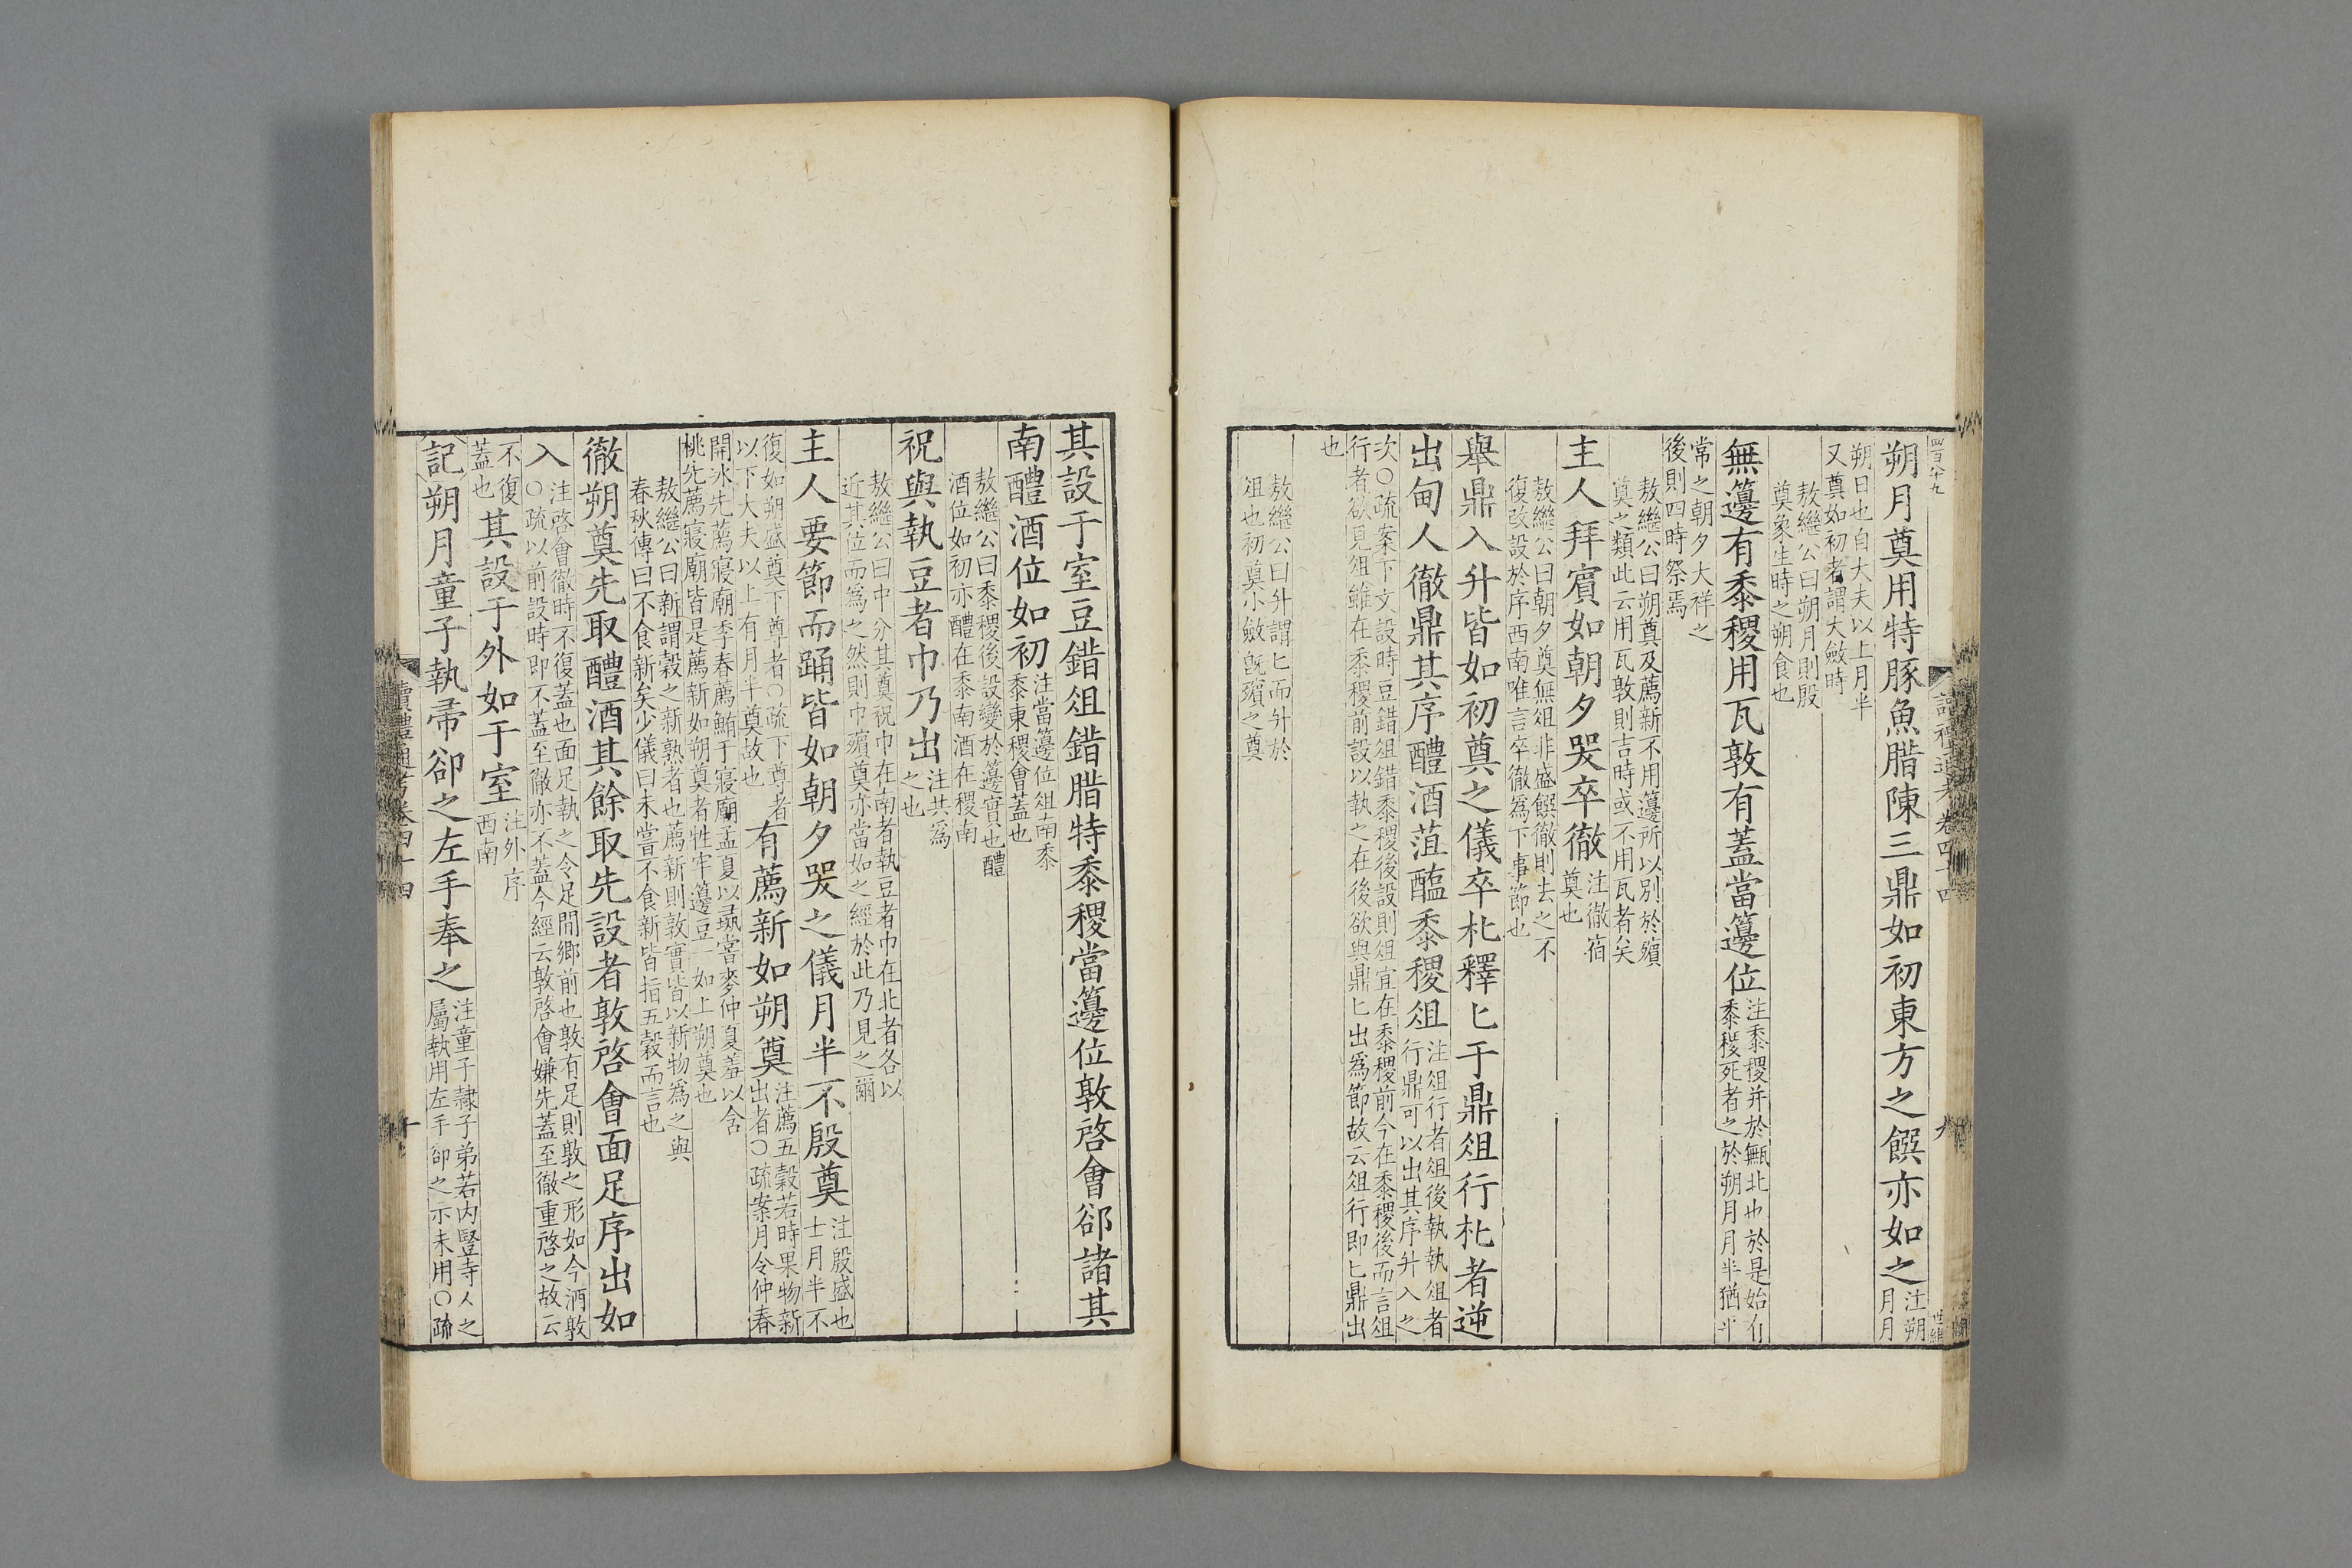 四百八十九
朔月奠用特豚魚腊陳三鼎如初東方之饌亦如之
注朔
月月
朔日也自大夫以上月半
又奠如初者謂大斂時
敖繼公曰朔月則殷
奠象生時之朔食也
無籩有黍稷用瓦敦有蓋當籩位
注黍稷并於甒北也於是始有
黍稷死者之於朔月月半猶平
常之朝夕大祥之
後則四時祭焉
敖繼公曰朔奠及薦新不用籩所以別於殯
奠之類此云用瓦敦則吉時或不用瓦者矣
主人拜賓如朝夕哭卒徹
注徹宿
奠也
敖繼公曰朝夕奠無俎非盛饌徹則去之不
復改設於序西南唯言卒徹爲下事節也
舉鼎入升皆如初奠之儀卒朼釋匕于鼎俎行朼者逆
出甸人徹鼎其序醴酒菹醢黍稷俎
注俎行者俎後執執俎者
行鼎可以出其序升入之
次〇疏案下文設時豆錯俎錯黍稷後設則俎宜在黍稷前今在黍稷後而言俎
行者欲見俎雖在黍稷前設以執之在後欲與鼎匕出爲節故云俎行即匕鼎出
也
敖繼公曰升謂匕而升於
俎也初奠小斂既殯之奠
讀禮通考卷四十四
九
其設于室豆錯俎錯腊特黍稷當籩位敦啓會郤諸其
南醴酒位如初
注當籩位俎南黍
黍東稷會蓋也
敖繼公曰黍稷後設變於籩實也醴
酒位如初亦醴在黍南酒在稷南
祝與執豆者巾乃出
注共爲
之也
敖繼公曰中分其奠祝巾在南者執豆者巾在北者各以
近其位而爲之然則巾殯奠亦當如之經於此乃見之爾
主人要節而踊皆如朝夕哭之儀月半不殷奠
注殷盛也
士月半不
復如朔盛奠下尊者〇疏下尊者
以下大夫以上有月半奠故也
有薦新如朔奠
注薦五穀若時果物新
出者〇疏案月令仲春
開冰先薦寢廟季春薦鮪于寢廟孟夏以彘嘗麥仲夏羞以含
桃先薦寢廟皆是薦新如朔奠者牲牢籩豆一如上朔奠也
敖繼公曰新謂穀之新熟者也薦新則敦實皆以新物爲之與
春秋傳曰不食新矣少儀曰未嘗不食新皆指五穀而言也
徹朔奠先取醴酒其餘取先設者敦啓會面足序出如
入
注啓會徹時不復蓋也面足執之令足間鄉前也敦有足則敦之形如今酒敦
〇疏以前設時即不蓋至徹亦不蓋今經云敦啓會嫌先蓋至徹重啓之故云
不復
蓋也
其設于外如于室
注外序
西南
記朔月童子執帚卻之左手奉之
注童子隷子弟若内豎寺人之
屬執用左手卻之示未用〇疏
讀禮通考卷四十四
十